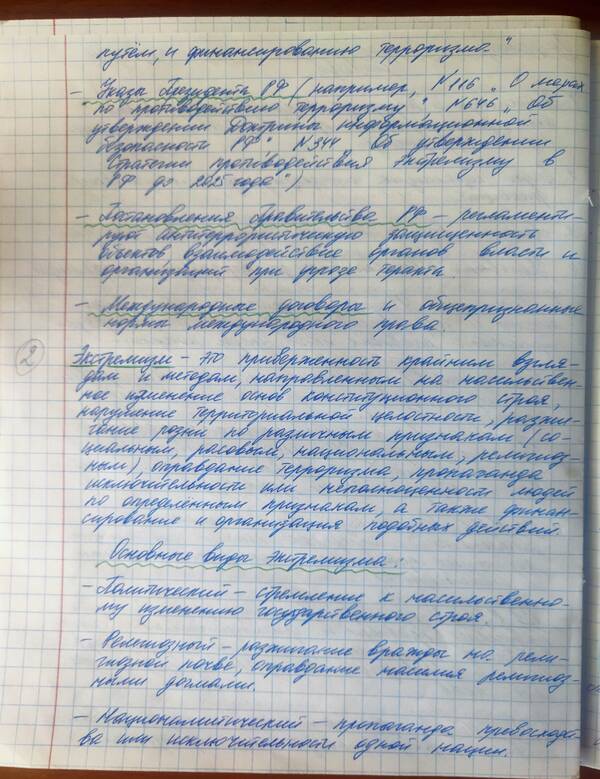 путём, и финансированию терроризма"
- Указы Президента РФ (например, №116 „О мерах
по противодействию терроризму", №646 „Об
утверждении Доктрины информационной
безопасности РФ", №344 „Об утверждении
Стратегии противодействия экстремизму в
РФ до 2025 года")
- Постановления Правительства РФ - регламенти-
руют антитеррористическую защищенность
объектов, взаимодействие органов власти и
организаций при угрозе теракта.
- Международные договоры и общепризнанные
нормы международного права.
2 Экстремизм - это приверженность крайним взгля-
дам и методам, направленным на насильствен-
ное изменение основ конституционного строя,
нарушение территориальной целостности, разжи-
гание розни по различным признакам (со-
циальным, расовым, национальным, религиоз-
ным), оправдание терроризма, пропаганда
исключительности или неполноценности людей
по определённым признакам, а также финан-
сирование и организация подобных действий.
Основные виды экстремизма:
- Политический - стремление к насильственно-
му изменению государственного строя
- Религиозный - разжигание вражды на рели-
гиозной почве, оправдание насилия религиоз-
ными догмами.
- Националитический - пропаганда превосходст-
ва или исключительности одной нации.